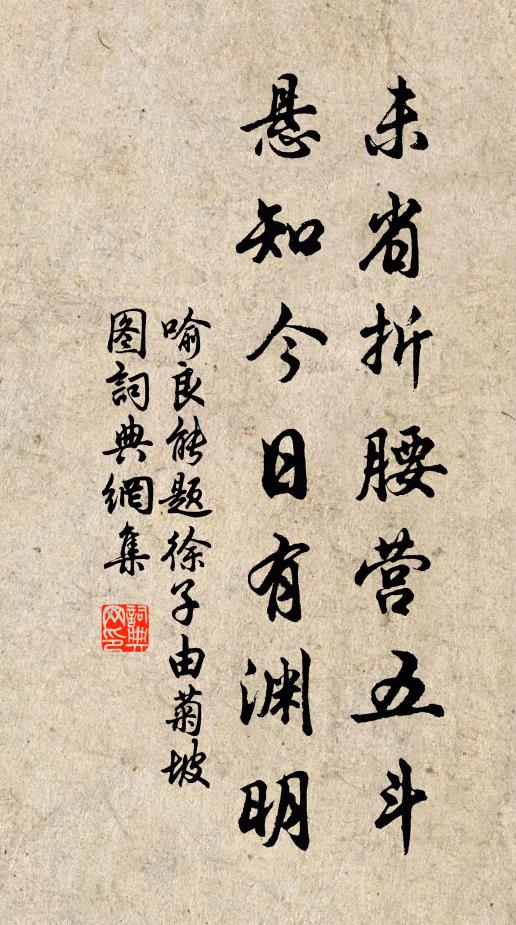 未省折腰营五斗
悬知今日有渊明
喻良能题徐子由菊坡
图词典網集
詞典网印